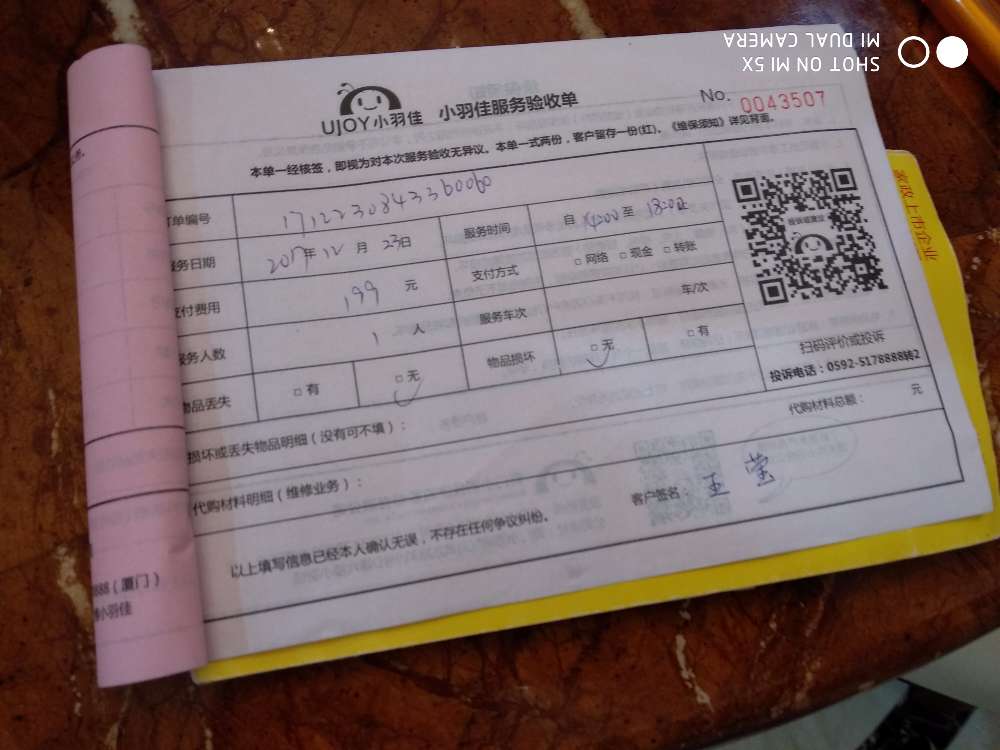 SHOT ON MI 5X
MI DUAL CAMERA
UJOY小羽佳 小羽佳服务验收单
No. 0043507
本单一经核签，即视为对本次服务验收无异议。本单一式两份，客户留存一份(红)。《维保须知》详见背面。
订单编号 1712230843360060
服务日期 2017年12月23日 服务时间 自14:00至18:00止
支付费用 199元 支付方式 □网络 □现金 □转账
服务人数 1人 服务车次 车/次
物品丢失 □有 □无 物品损坏 □无 □有
扫码评价或投诉
投诉电话：0592-5178888转2
损坏或丢失物品明细（没有可不填）：
代购材料明细（维修业务）： 代购材料总额： 元
以上填写信息已经本人确认无误，不存在任何争议纠纷。 客户签名 王莹
888（厦门）
小羽佳
家政上市企业